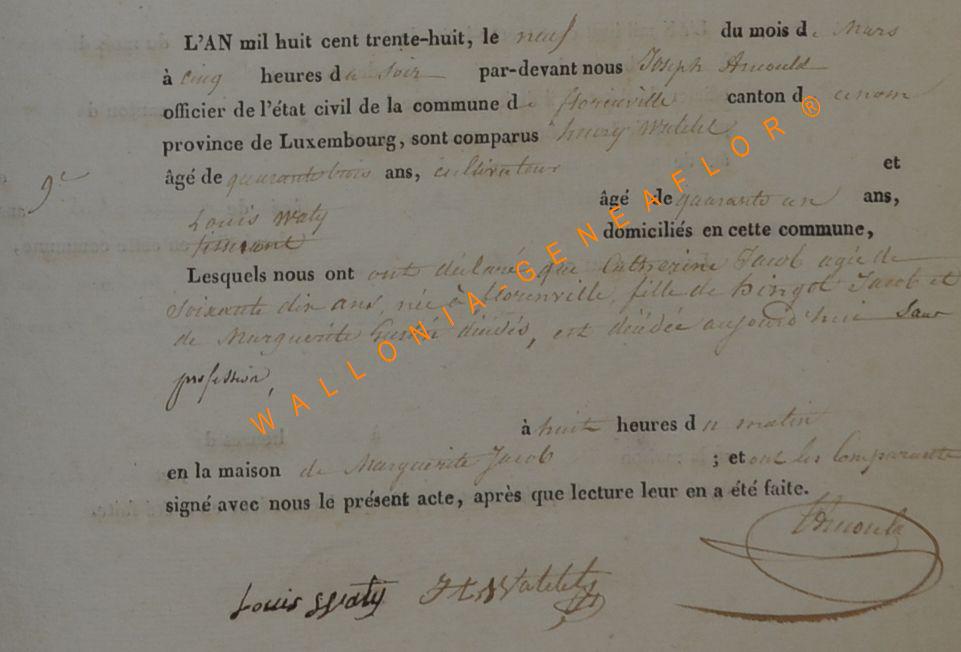 L'AN mil huit cent trente-huit, le neuf du mois de Mars
à cinq heures du soir par-devant nous Joseph Arnould
officier de l'état civil de la commune de florenville canton d
province de Luxembourg, sont comparus henry Watelet
âgé de quarante trois ans, cultivateur et
9e
Louis Waty âgé de quarante un ans,
domiciliés en cette commune,
Lesquels nous ont ont déclaré que Catherine Jacob agée de
Soixante dix ans, née à florenville, fille de Jacob et
de Marguerite décédés, est décédée aujourd'hui Sans
profession,
à huit heures du matin
en la maison de Marguerite Jacob ; et ont les Comparants
signé avec nous le présent acte, après que lecture leur en a été faite.
Arnould
Louis Waty H Watelet
WALLONIA-GENEAFLOR ®